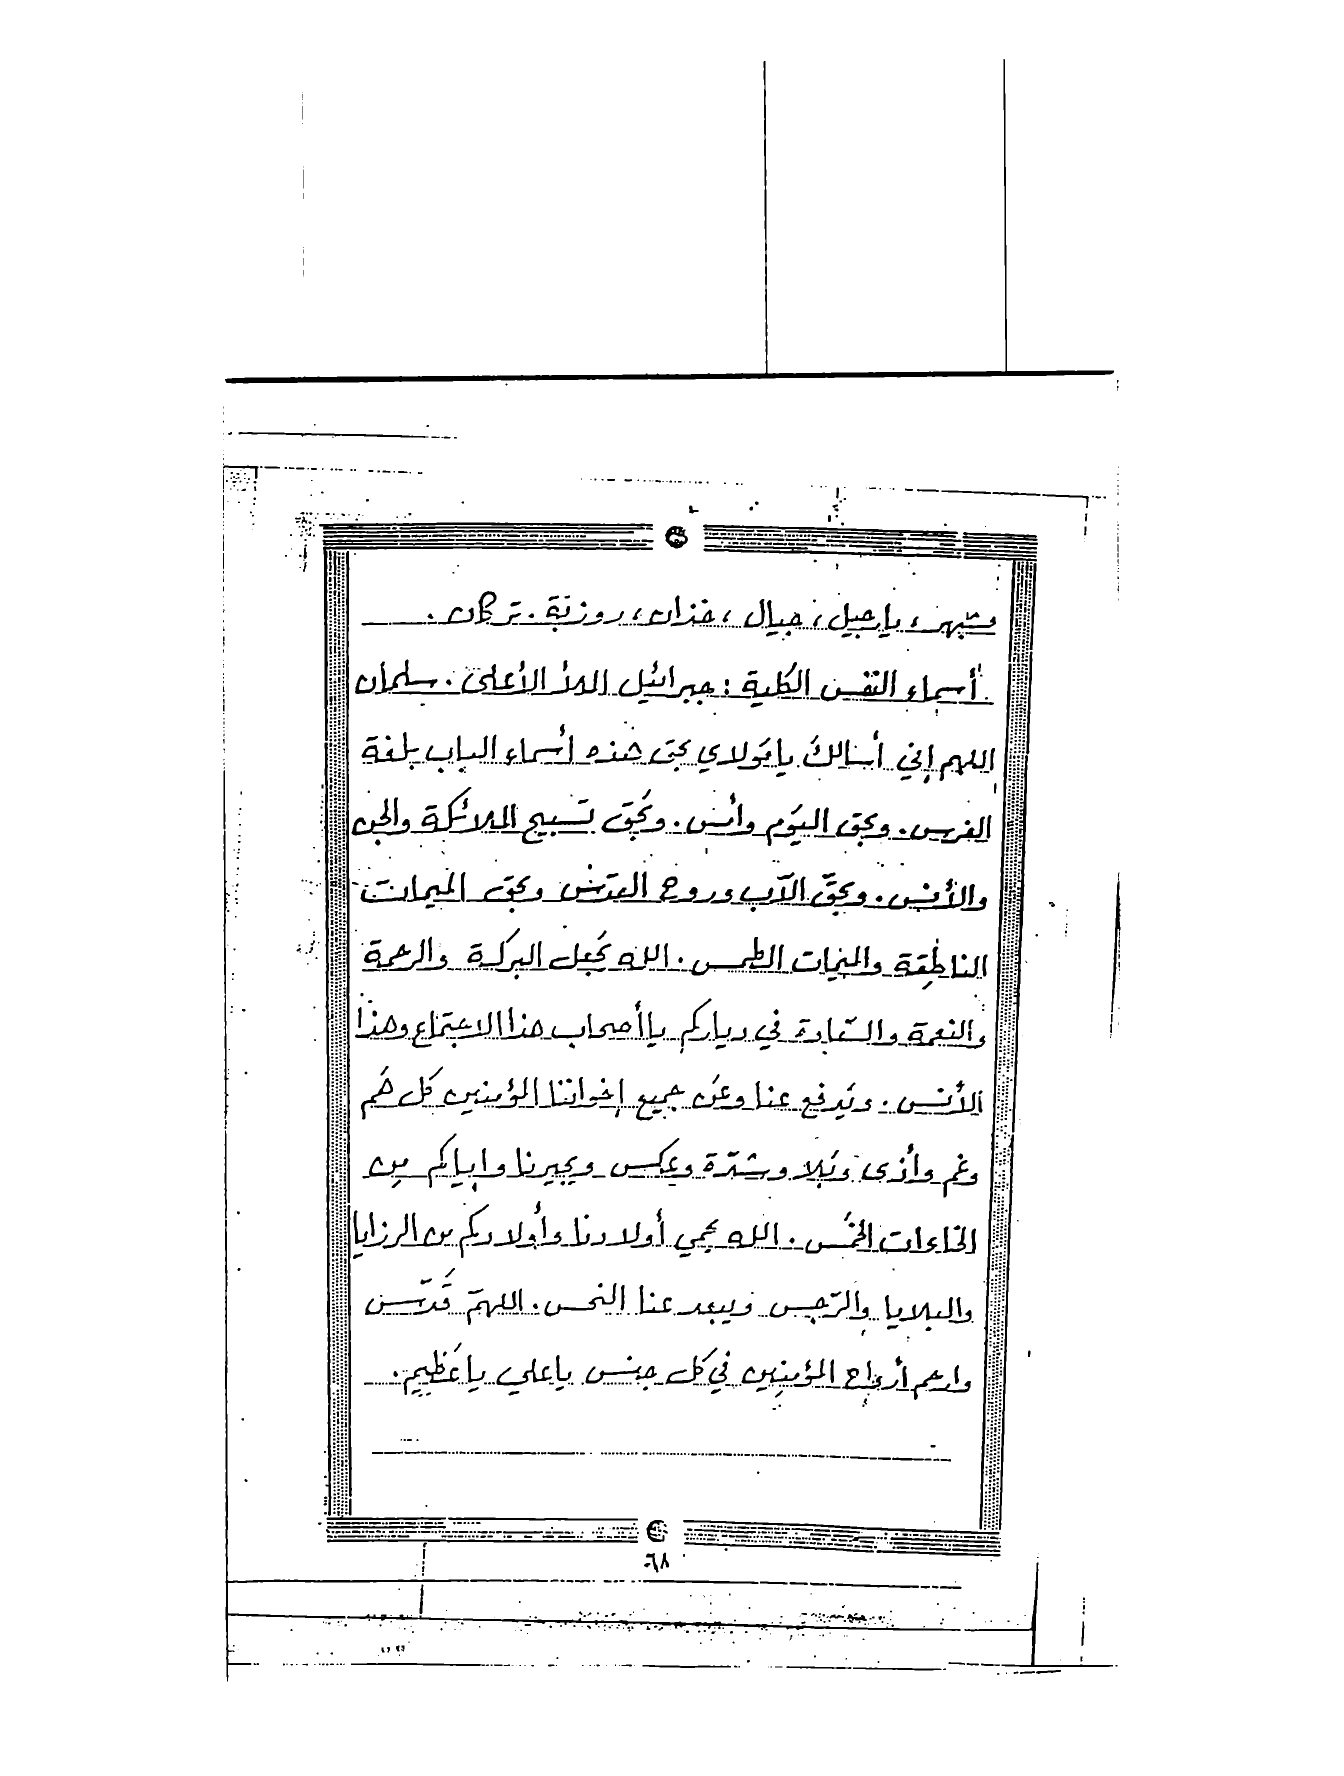 يارجيل، جيال، خزان، روزنة. تركان.
أسماء النفس الكلية: جبرائيل الملأ الأعلى. سلمان
اللهم إني أسالكَ يا مَولاي بحق هذه أسماء الباب بلغة
الفرس. وبحق اليَوم وأمس. وبحَق تسبيح الملائكة والجن
والأنس. وبحقَّ الآب وروح القدس وبحق الميمات
الناطقة والميمات الطمس. الله يجعل البركة والرحمة
والنعمة والسّعادة في دياركم ياأصحاب هذا الاجتماع وهذا
الأنس. ويَدفع عنا وعَن جميع إخواننا المؤمنين كل هَم
وغم وأذى وبَلا وشدّة وعكس ويجيرنا وإياكم مِن
الخاءات الخمُس. الله يحمي أولادنا وأولادكم من الرزايا
والبلايا والرّجس ويبعد عنا النحس. اللهمّ قَدّس
وارحم أرواح المؤمنِين في كل جنس ياعلي ياعَظيم.
٦٨